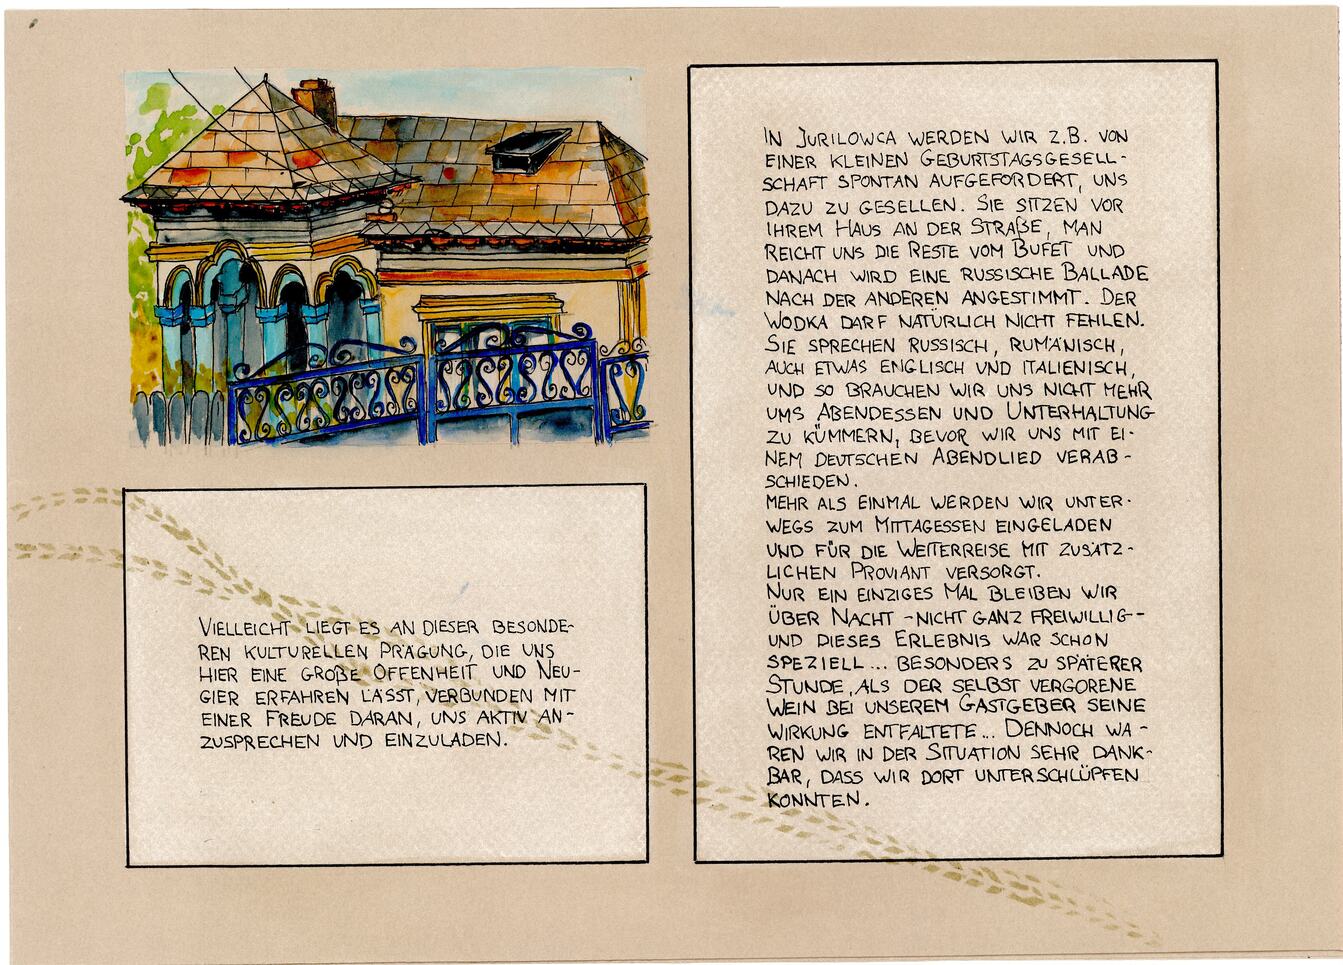 VIELLEICHT LIEGT ES AN DIESER BESONDE-
REN KULTURELLEN PRÄGUNG, DIE UNS
HIER EINE GROßE OFFENHEIT UND NEU-
GIER ERFAHREN LÄSST, VERBUNDEN MIT
EINER FREUDE DARAN, UNS AKTIV AN-
ZUSPRECHEN UND EINZULADEN.
IN JURILOWCA WERDEN WIR Z.B. VON
EINER KLEINEN GEBURTSTAGSGESELL-
SCHAFT SPONTAN AUFGEFORDERT, UNS
DAZU ZU GESELLEN. SIE SITZEN VOR
IHREM HAUS AN DER STRAßE, MAN
REICHT UNS DIE RESTE VOM BUFET UND
DANACH WIRD EINE RUSSISCHE BALLADE
NACH DER ANDEREN ANGESTIMMT. DER
WODKA DARF NATÜRLICH NICHT FEHLEN.
SIE SPRECHEN RUSSISCH, RUMÄNISCH,
AUCH ETWAS ENGLISCH UND ITALIENISCH,
UND SO BRAUCHEN WIR UNS NICHT MEHR
UMS ABENDESSEN UND UNTERHALTUNG
ZU KÜMMERN, BEVOR WIR UNS MIT EI-
NEM DEUTSCHEN ABENDLIED VERAB-
SCHIEDEN.
MEHR ALS EINMAL WERDEN WIR UNTER-
WEGS ZUM MITTAGESSEN EINGELADEN
UND FÜR DIE WEITERREISE MIT ZUSÄTZ-
LICHEN PROVIANT VERSORGT.
NUR EIN EINZIGES MAL BLEIBEN WIR
ÜBER NACHT -NICHT GANZ FREIWILLIG--
UND DIESES ERLEBNIS WAR SCHON
SPEZIELL... BESONDERS ZU SPÄTERER
STUNDE, ALS DER SELBST VERGORENE
WEIN BEI UNSEREM GASTGEBER SEINE
WIRKUNG ENTFALTETE... DENNOCH WA-
REN WIR IN DER SITUATION SEHR DANK-
BAR, DASS WIR DORT UNTERSCHLÜPFEN
KONNTEN.